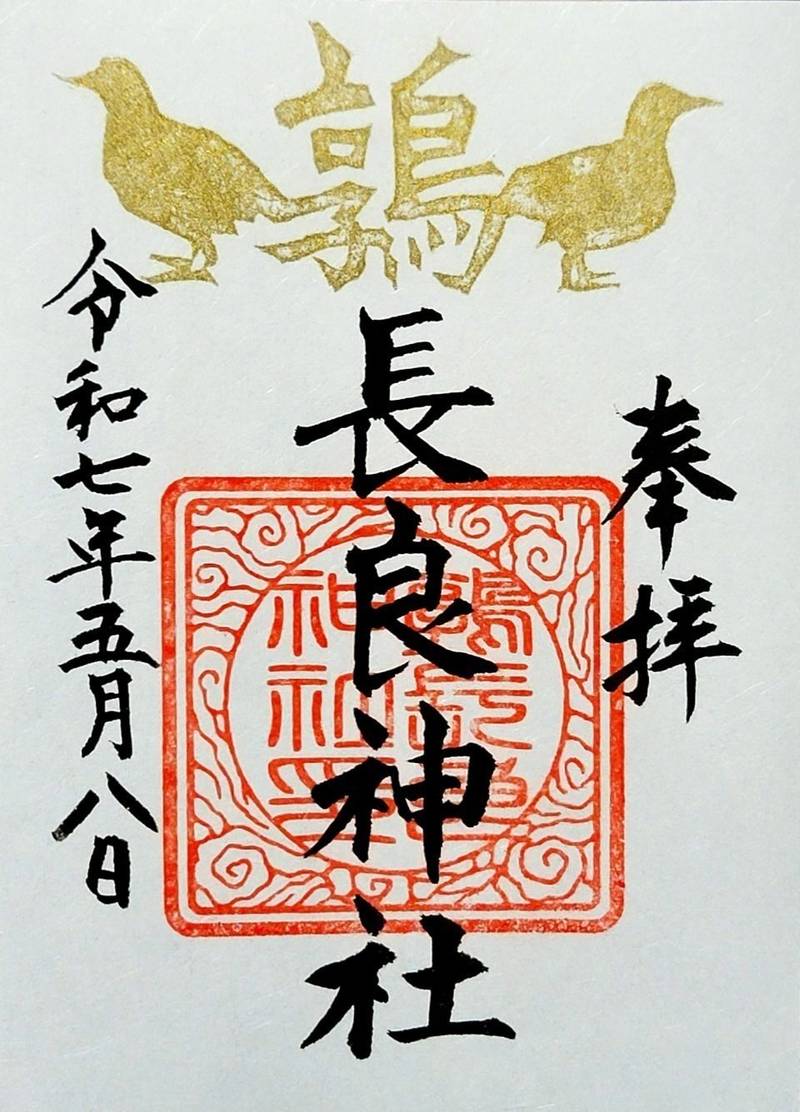 鶉
奉拝
長良神社
令和七年五月八日